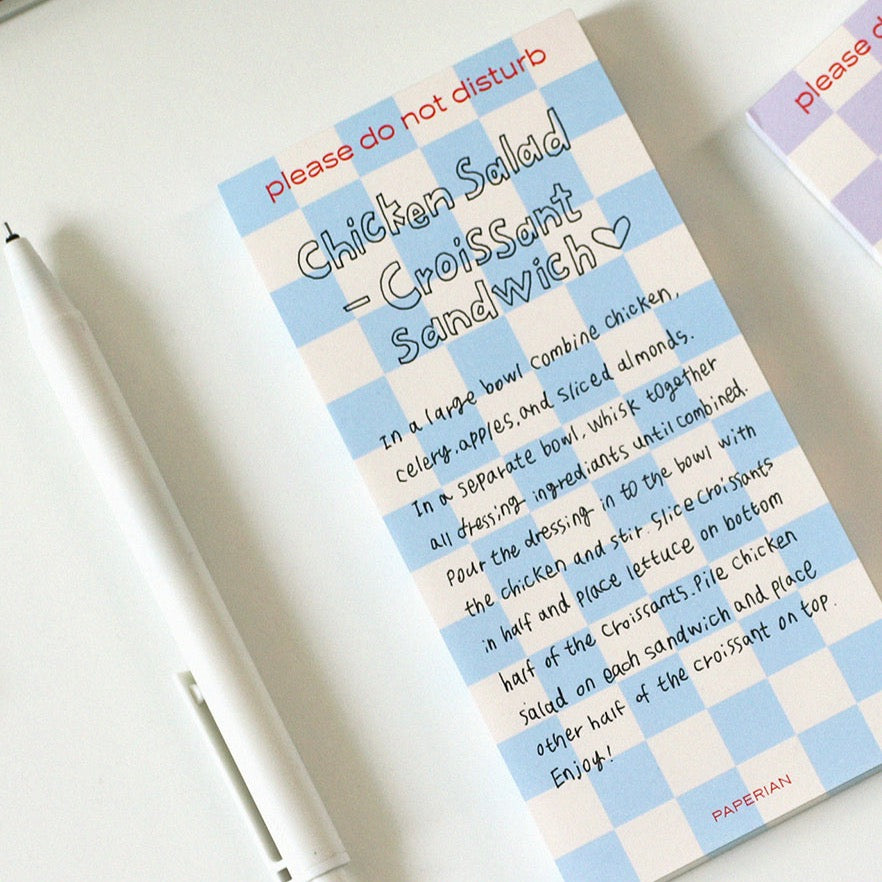 please do not disturb
Chicken Salad
- Croissant
Sandwich♡
In a large bowl combine chicken,
celery, apples, and sliced almonds.
In a separate bowl, whisk together
all dressing ingrediants until combined.
Pour the dressing in to the bowl with
the chicken and stir. Slice croissants
in half and place lettuce on bottom
half of the croissants. Pile chicken
salad on each sandwich and place
other half of the croissant on top.
Enjoy!
PAPERIAN
please d